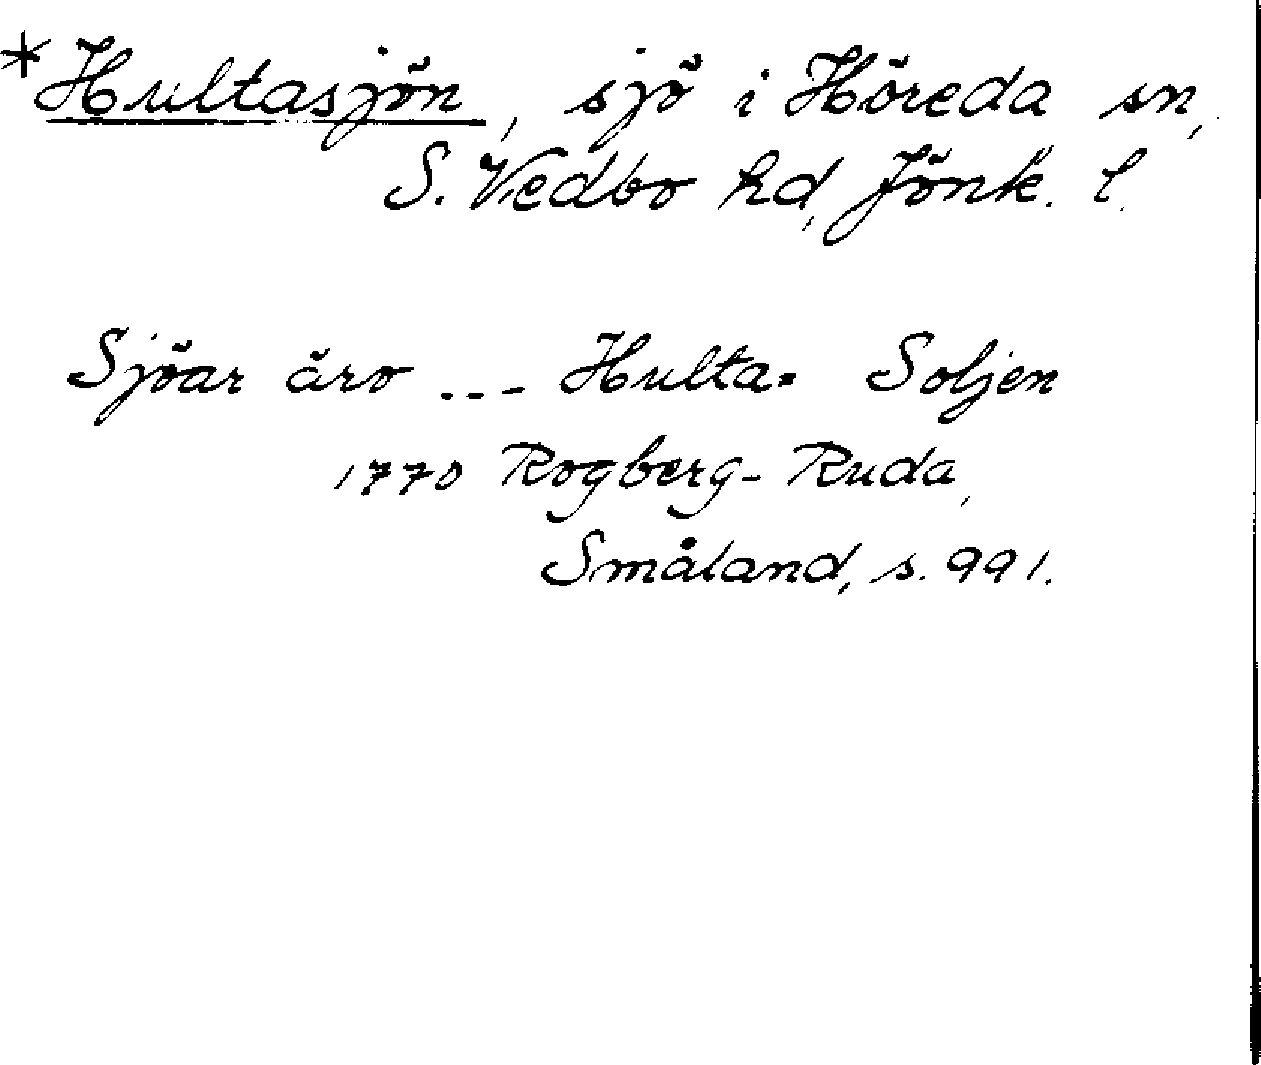 *Hultasjön, sjö i Höreda sn,
S. Vedbo hd, Jönk. l.
Sjöar äro --- Hulta- Soljen
1770 Rogberg-Ruda,
Småland, s. 991.